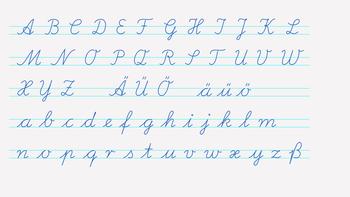 A B C D E F G H I J K L
M N O P Q R S T U V W
X Y Z Ä Ü Ö ä ü ö
a b c d e f g h i j k l m
n o p q r s t u v w x y z ß